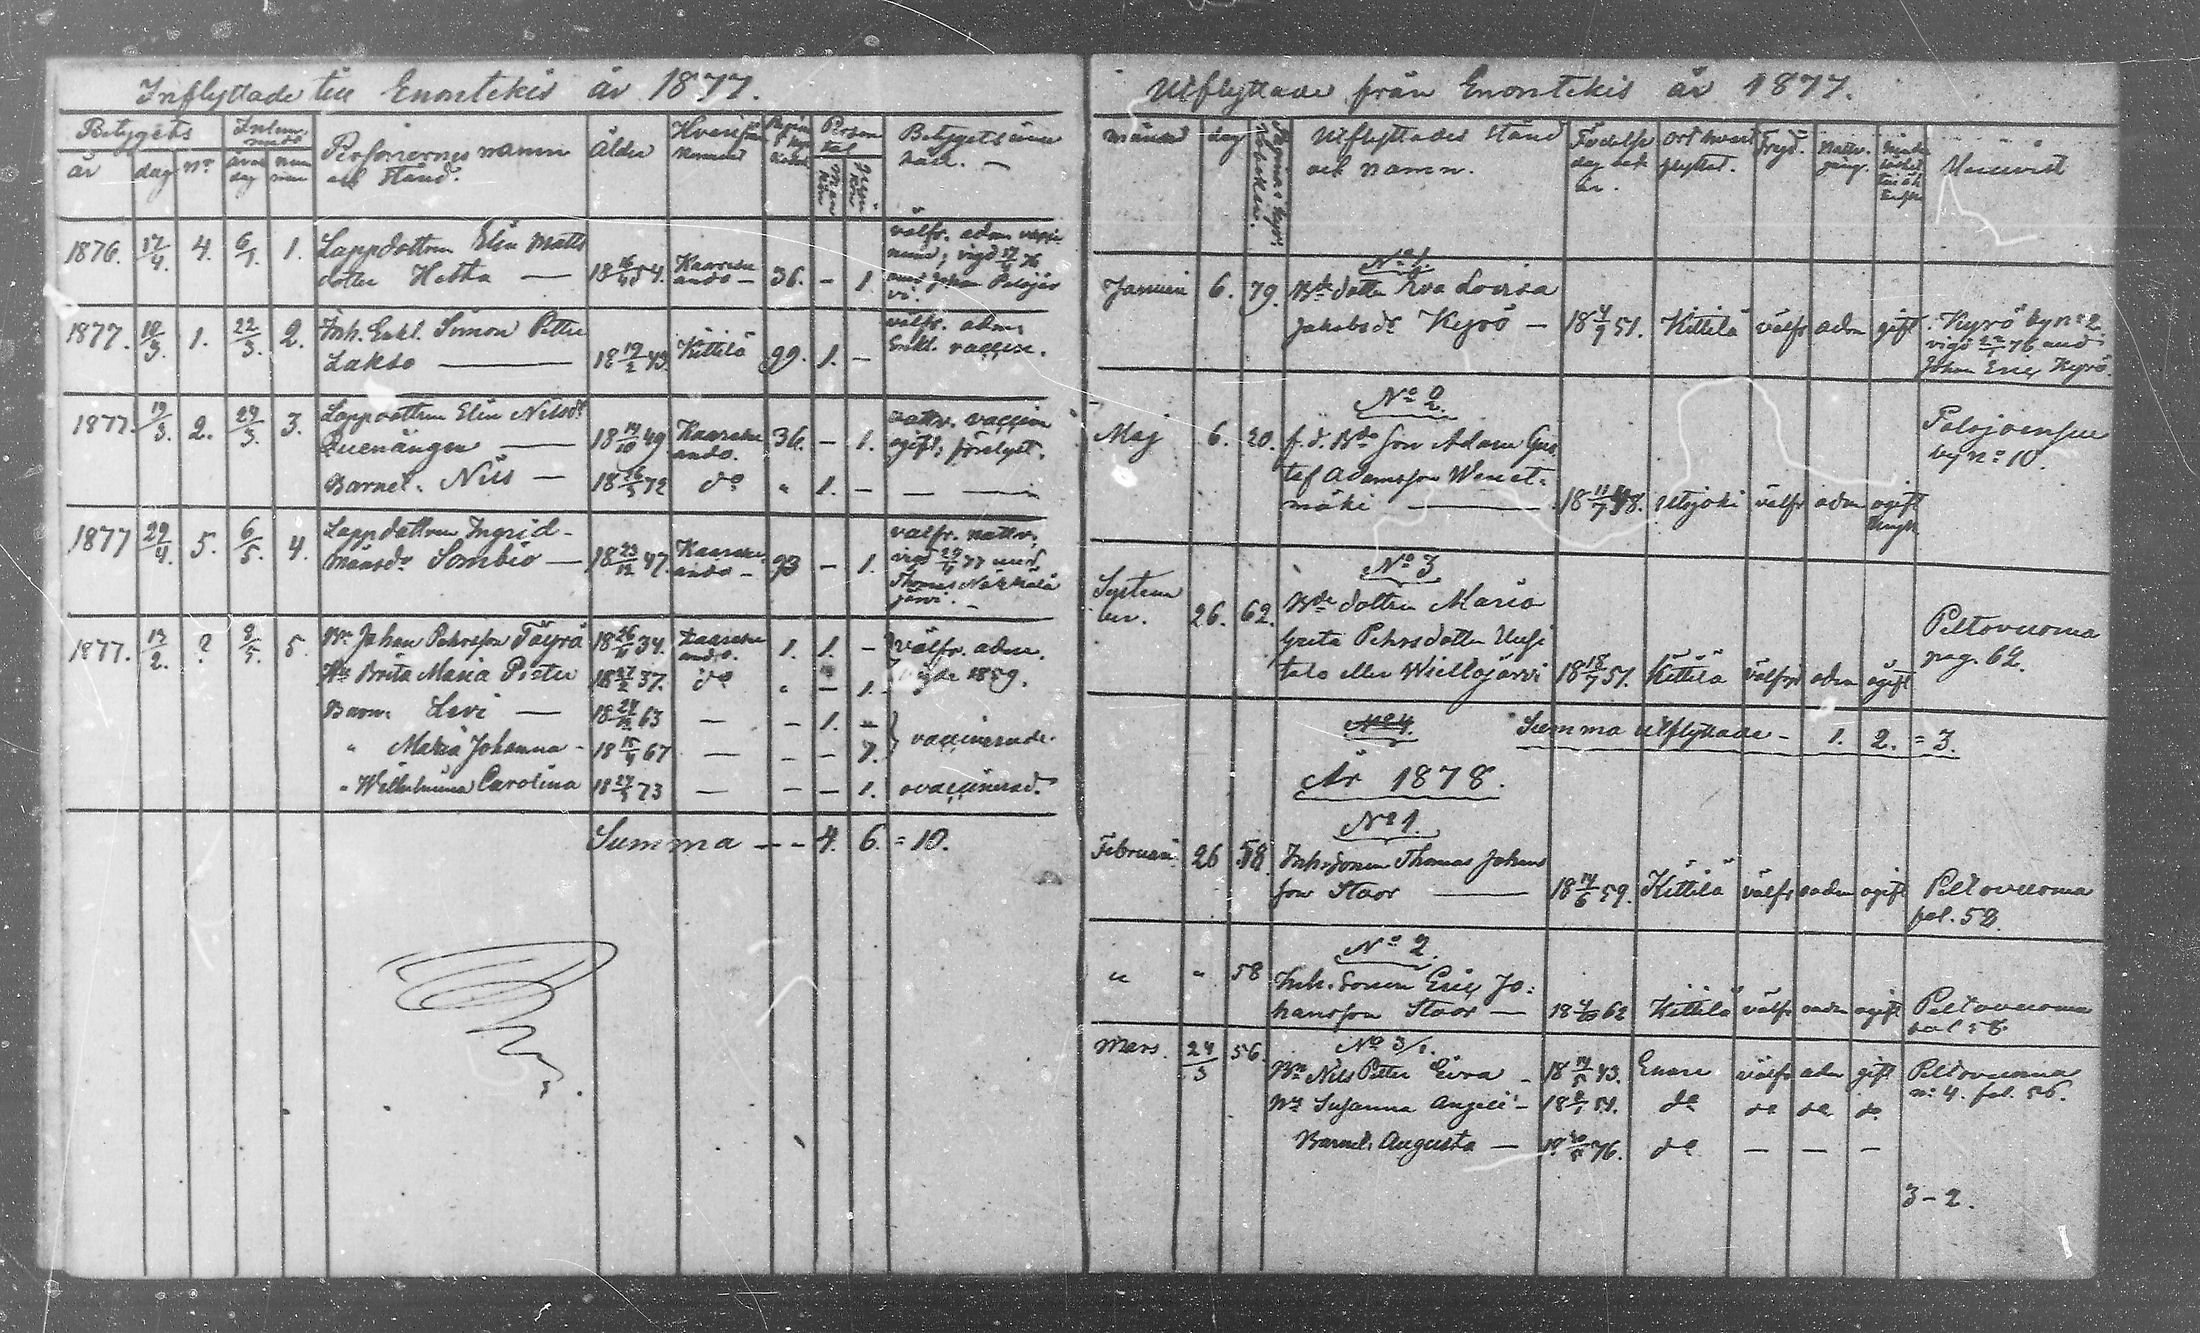 Inflyttade till Enontekis år 1877.
Betygets
år dag nr dag
Personernes namn
och stånd.
Ålder
Person
tal
Betygets inne
håll. —
1876. 17/4. 4. 6/1. 1. Lappdottren Elin Matts
dotter Hetta — 18 54. Kaaresu
ando — 36. — 1.
välfr. adm. vacci
nerad; vigd 17/4 76
med Johan Palojär
vi.
1877. 1. 22/3. 2. Inh. Enkl. Simon Petter
Lakso — 18 19/2 43. Kittilä 99. 1. —
välfr. adm.
Enkl. vaccin.
1877. 19/3. 2. 29/3. 3. Lappdottren Elin Nilsdr
Quenången — 18 19/10 49. Kaaresu
ando. 36. — 1.
nattv. vaccin
ogift,
Barnet. Nils — 18 72 do " 1. — — —
1877 29/4. 5. 6/5. 4. Lappdottren Ingrid
Månsdr Sombio — 18 23/12 47. Kaaresu
ando — 93 — 1.
välfr. nattv.
vigd 29/4 77 med
Thomas Näkkälä
järvi. —
1877. 2. ? 5. 5. Bn Johan Pehrsson Töyrä 18 34. Kaaresu
ando. 1. 1. — välfr. adm.
Hu Brita Maria Pietu 18 27/2 37. do " — 1. vigde 1859.
Barn: Levi — 18 63 — — 1. —
" Maria Johanna — 18 15/4 67 — — — 1. vaccinerade.
" Wilhelmina Carolina 18 73 — — — 1. ovaccinerad.
Summa — — 4. 6. = 10.
Utflyttade från Enontekis år 1877.
månad dag
Utflyttades stånd
och namn.
Födelse
dag och
år.
Ort hvart
flyttat.
Frejd.
Nattv.
gång.
Januari 6. 79.
No 1.
Bde dotter Eva Lovisa
Jakobsdr Kyrö — 18 51. Kittilä välfr adm gift
Kyrö by no 2.
vigd 76 med
Johan Eric Kyrö.
Maj 6. 20.
No 2.
f. d. Bde Son Adam Gus
taf Adamsson Wenet
mäki — 18 48. Utsjoki välfr adm ogift
Palojoensuu
by no 10.
Septem
ber. 26. 62.
No 3
Bde dotter Maria
Greta Pehrsdotter Uusi
talo eller Wiellojärvi 18 18/7 57. Kittilä välfrd adm ogift
Peltovuoma
pag. 62.
No 4. Summa utflyttade — 1. 2. = 3.
År 1878.
Februari 26 58.
No 1.
Inh. sonen Thomas Johans
son Staor — 18 14/6 59. Kittilä välfr adm ogift
Peltovuoma
fol. 58.
" " 58
No 2.
Inh. sonen Eric Jo=
hansson Staor — 18 62 Kittilä välfr adm ogift
Peltovuoma
fol 58.
Mars. 24/3 56.
No 3/1.
Bn Nils Petter Eira — 18 14/5 43. Enare välfr adm gift
Peltovuoma
no 4. fol. 56.
Hu Susanna Angeli — 18 51. do do do do
Barnet. Augusta — 18 76. do — — —
3 — 2.